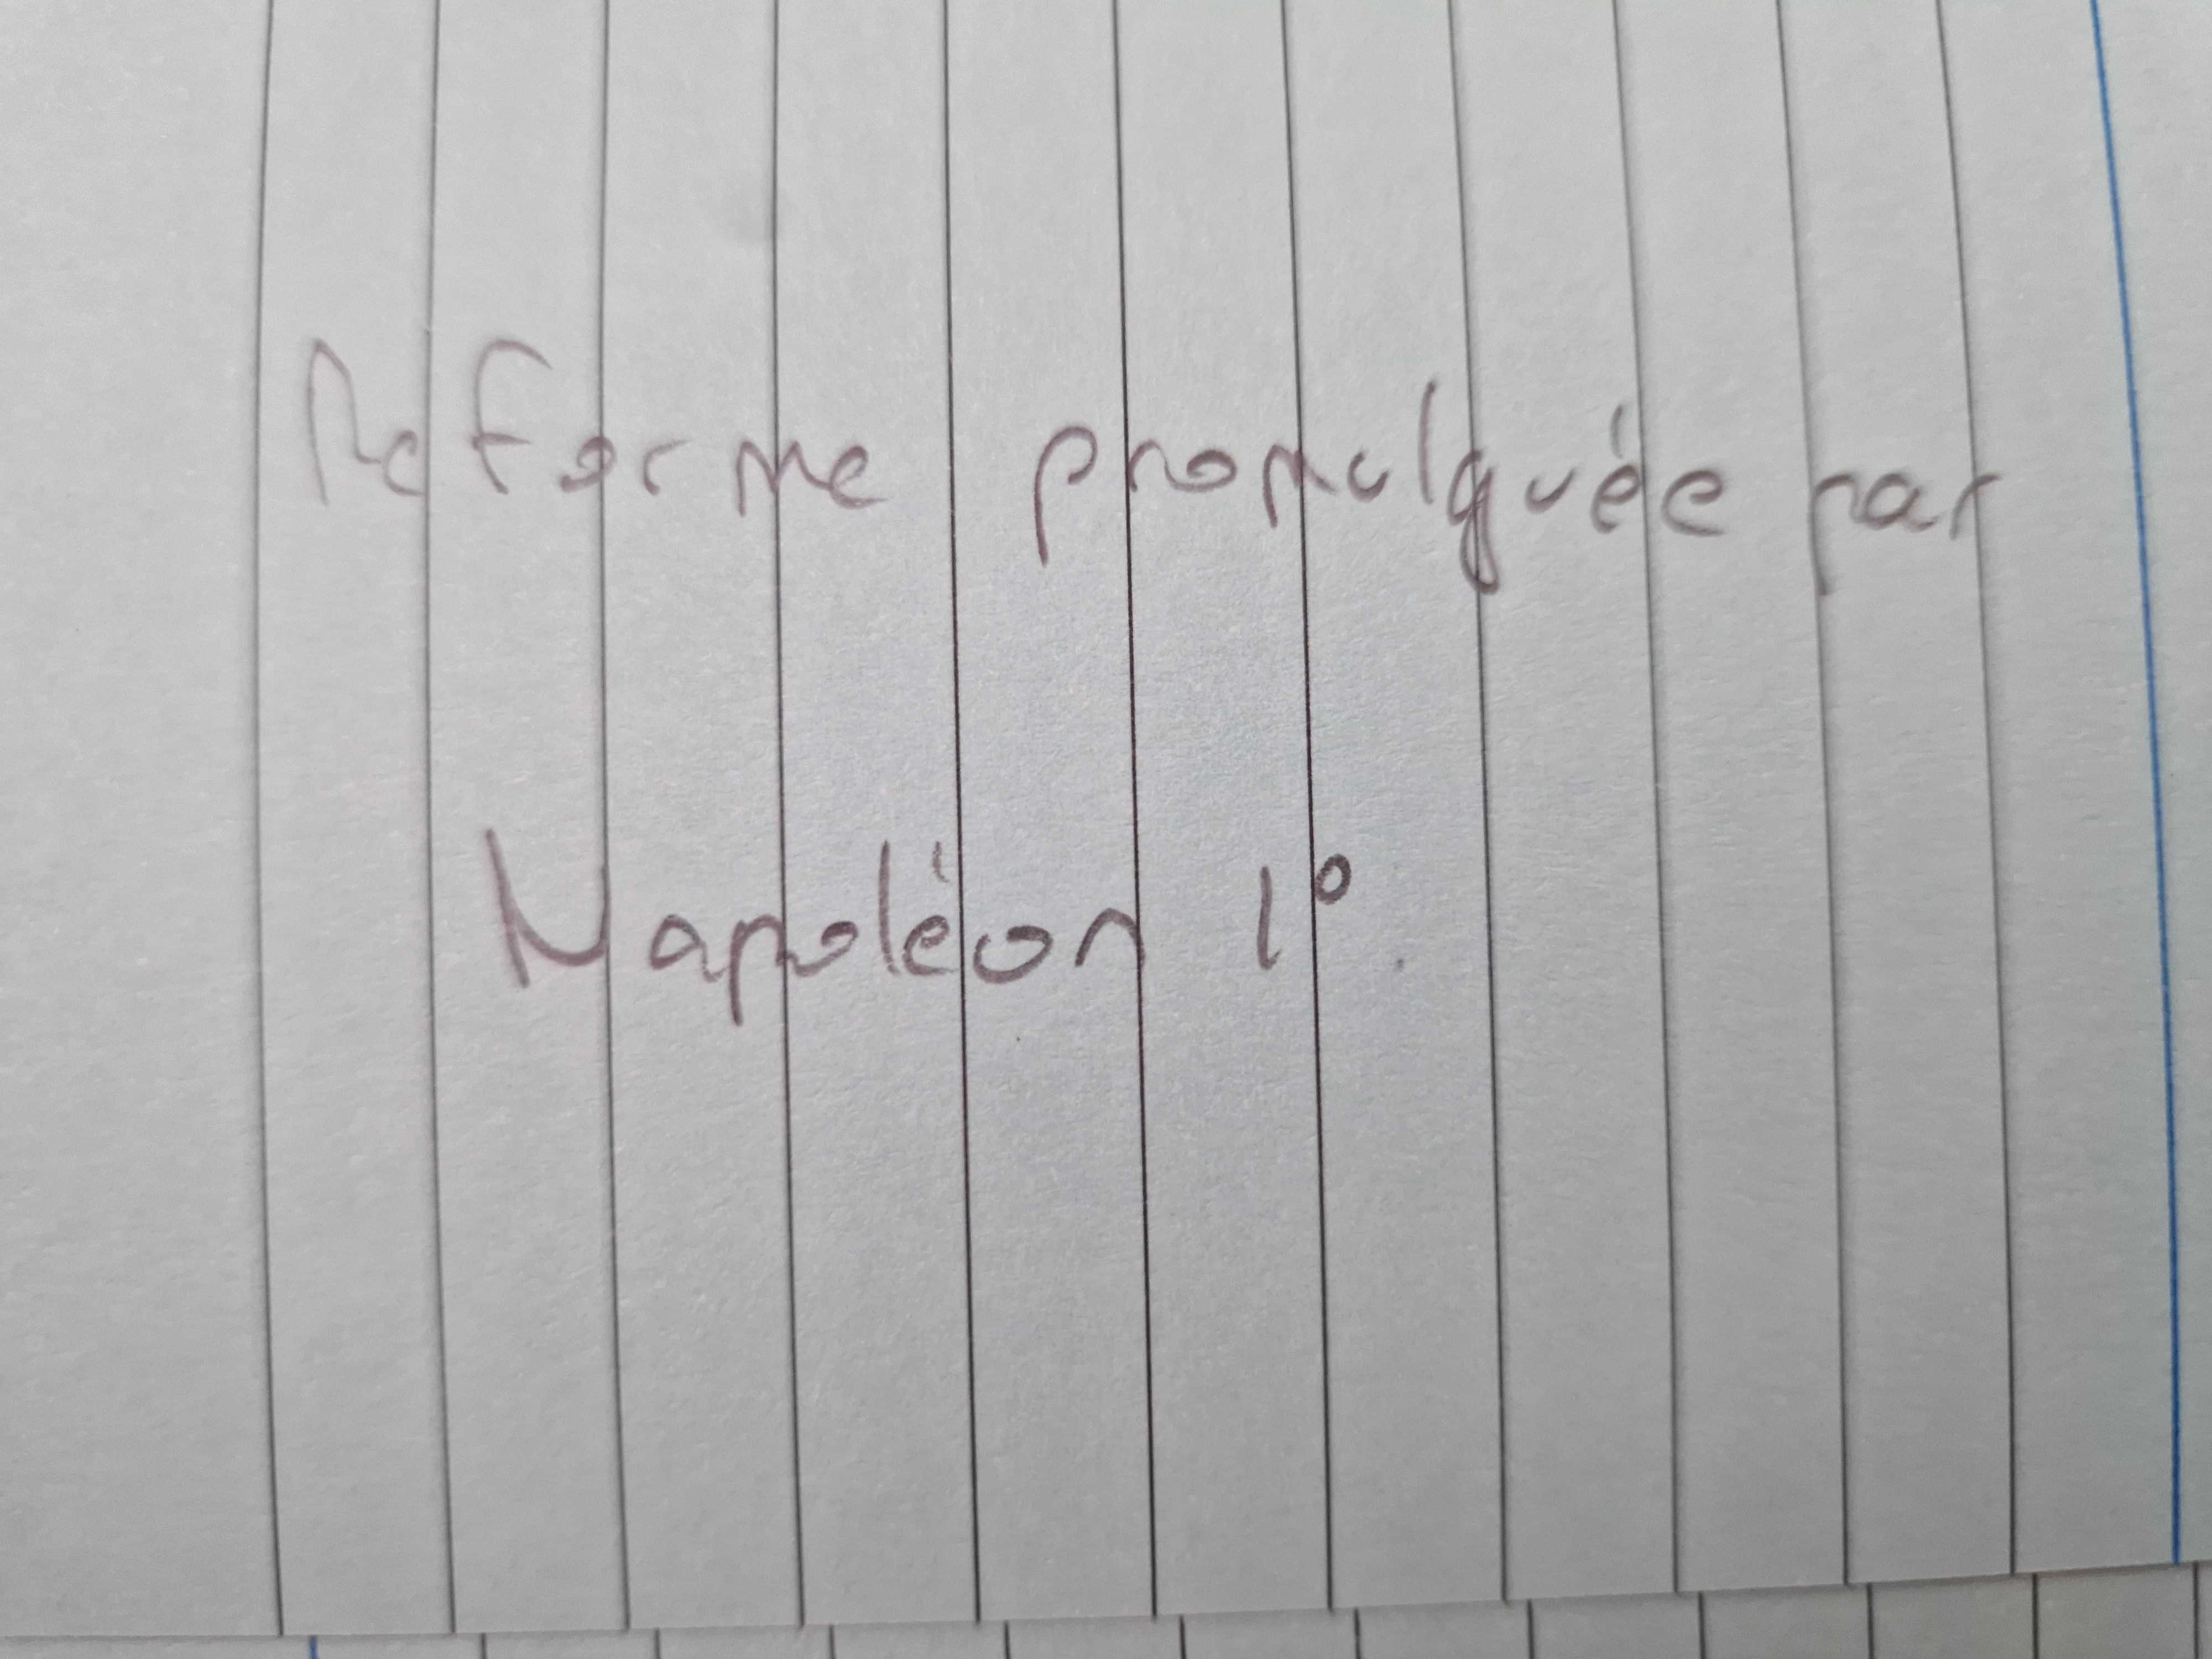 Reforme promulguée par
Napoléon 1°.